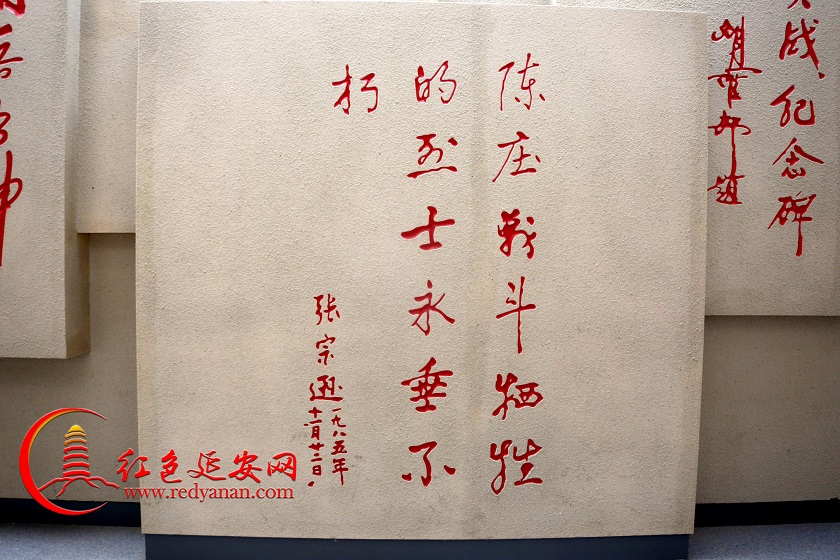 陈庄战斗牺牲
的烈士永垂不
朽
张宗逊
一九八五年
十一月廿二日。
战纪念碑
题
神
红色延安网
www.redyanan.com